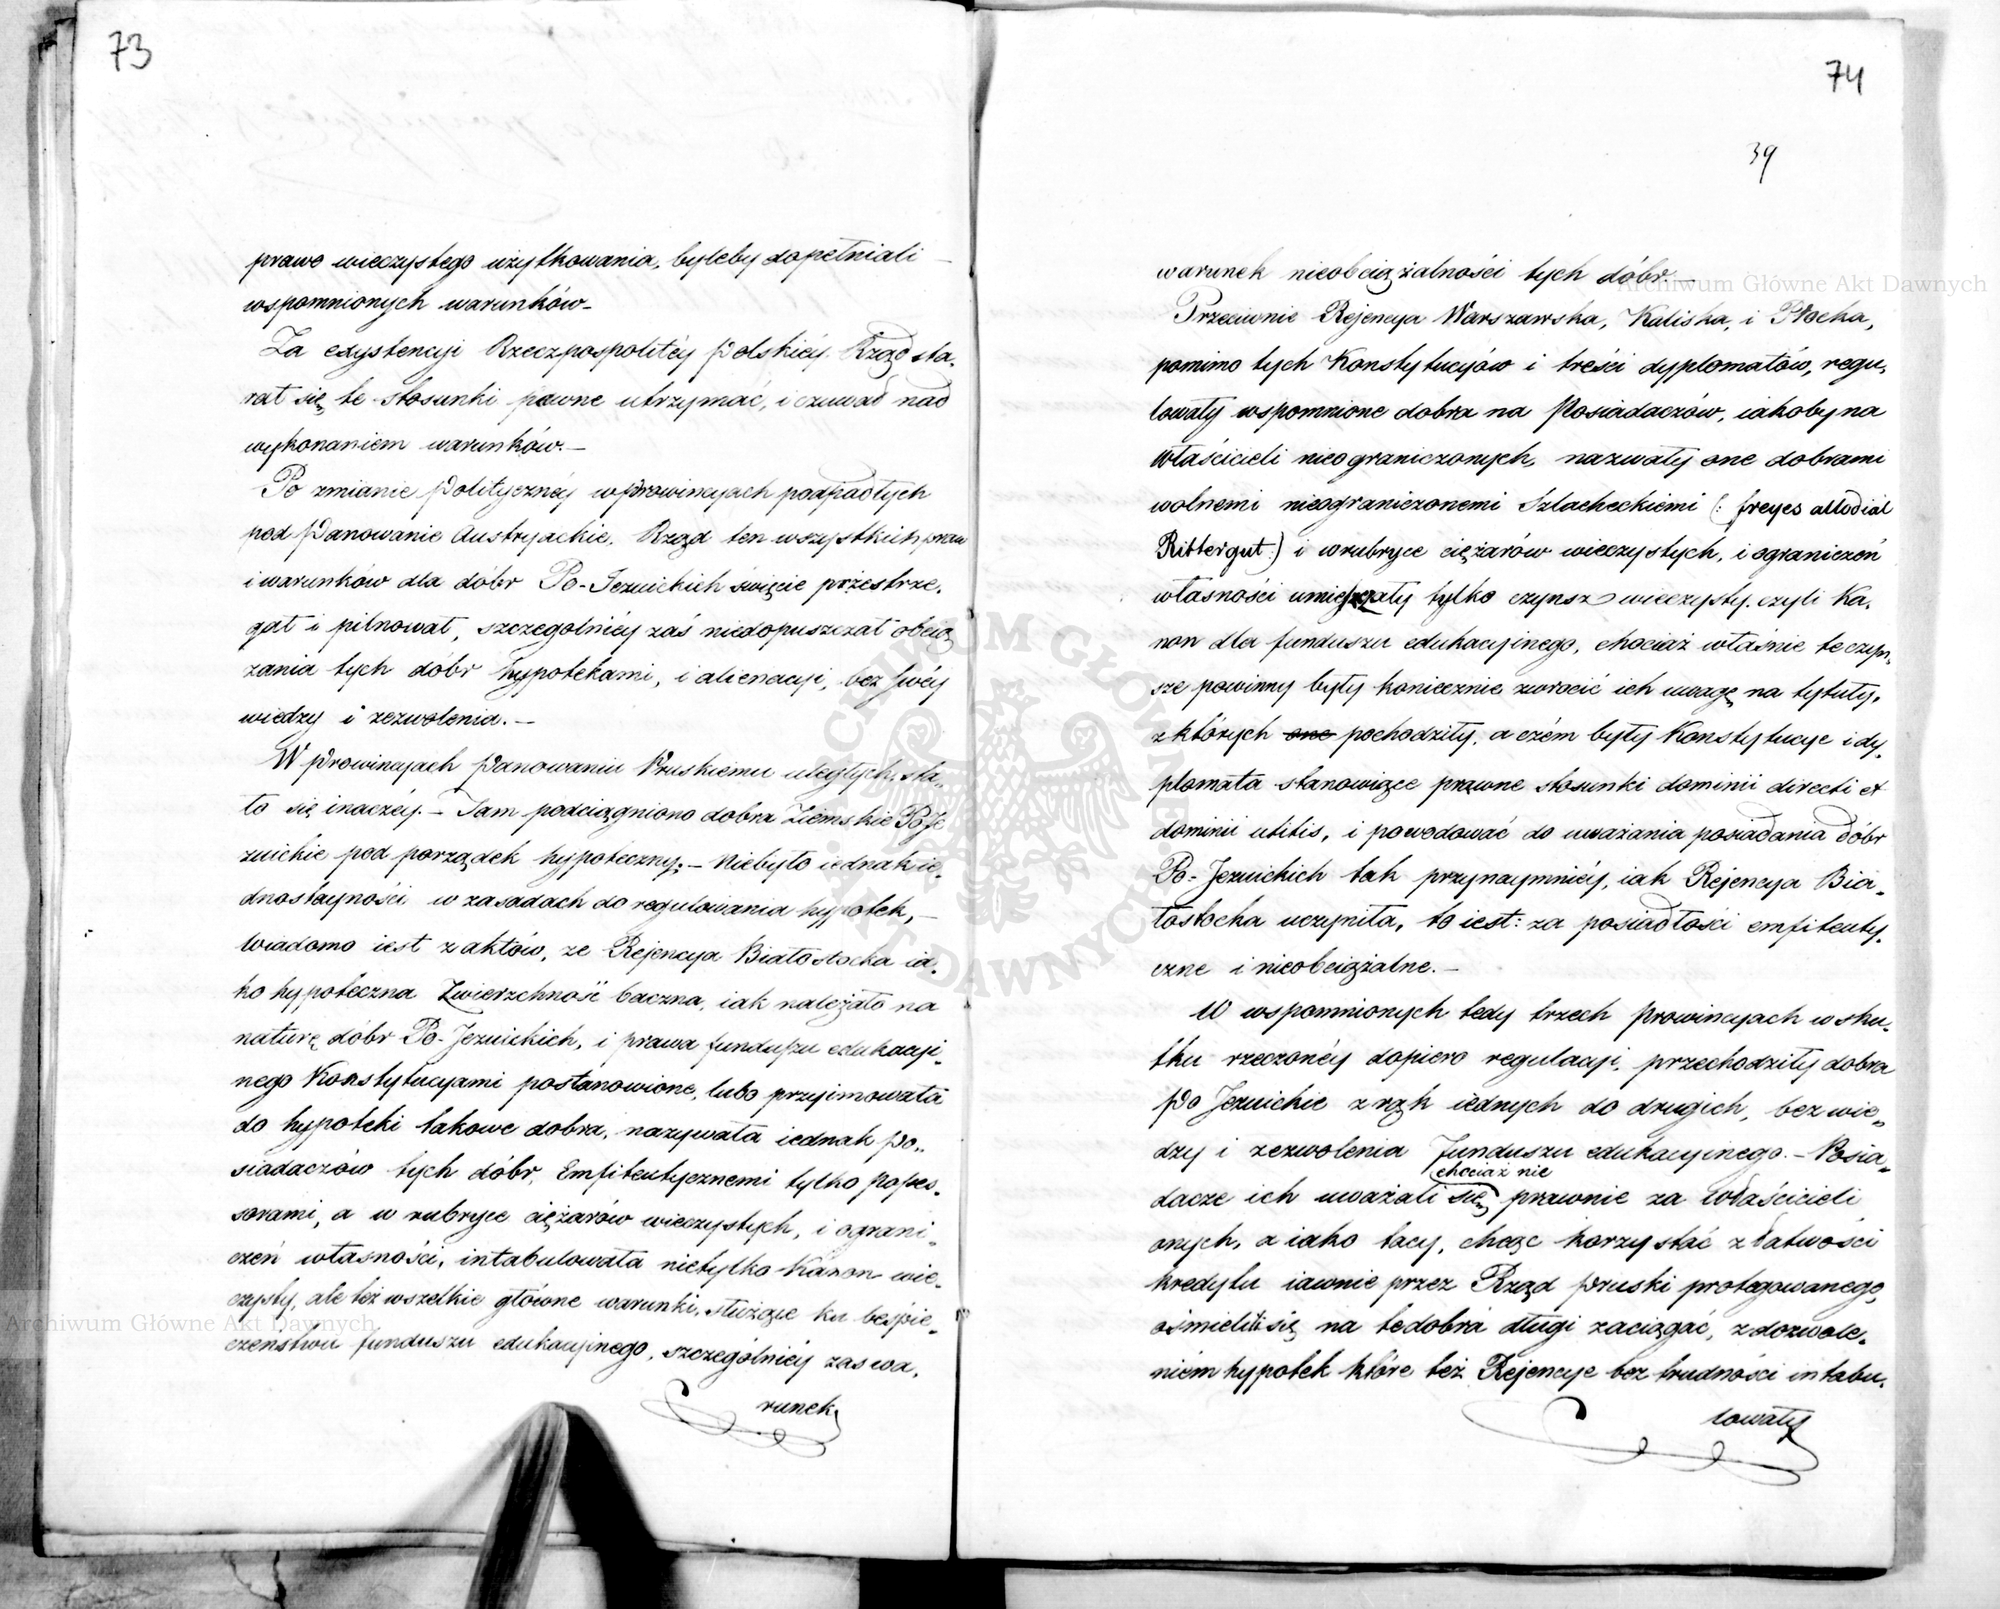 73
prawo wieczystego użytkowania, byleby dopełniali
wspomnionych warunków.
Za exystencyi Rzeczpospolitéy Polskiéy Rząd sta-
rał się te stosunki pewne utrzymać, i czuwał nad
wykonaniem warunków.—
Po zmianie Polityczney w Prowincyach podpadłych
pod Panowanie Austryackie, Rząd ten wszystkich praw
i warunków dla dóbr Po-Jezuickich święcie przestrze-
gał i pilnował, szczególniéy zaś niedopuszczał obcią
żania tych dóbr hypotekami, i alienacyi, bez swéy
wiedzy i zezwolenia.—
W Prowincyach Panowaniu Pruskiemu uległych, sta-
ło się inaczéy.— Tam podciągniono dobra Ziemskie PoJe
zuickie pod porządek hypoteczny;— niebyło iednak ie-
dnostayności w zasadach do regulowania hypotek,—
Wiadomo iest z aktów, że Rejencya Białostocka ia-
ko hypoteczna Zwierzchność baczna, iak należało na
naturę dóbr Po-Jezuickich, i prawa funduszu edukacyi-
nego Konstytucyami postanowione, lubo przyimowała
do hypoteki takowe dobra, nazywała iednak Po-
siadaczów tych dóbr, Emfiteutycznemi tylko posses-
sorami, a w rubryce ciężarów wieczystych, i ograni-
czeń własności, intabulowała nietylko Kanon wie-
czysty, ale też wszelkie główne warunki, służące ku bespie-
czeństwu funduszu edukacyinego, szczególniéy zaś wa-
runek
74
39
warunek nieobciążalności tych dóbr.—
Przeciwnie Rejencya Warszawska, Kaliska, i Płocka,
pomimo tych Konstytucyów i treści dyplomatów, regu-
lowały wspomnione dobra na Posiadaczów, iakoby na
właścicieli nieograniczonych, nazwały one dobrami
wolnemi nieograniczonemi Szlacheckiemi (: freyes allodial
Rittergut:) i w rubryce ciężarów wieczystych, i ograniczeń
własności umieszczały tylko czynsz wieczysty, czyli Ka-
non dla funduszu edukacyinego, chociaż właśnie te czyn-
sze powinny były koniecznie zwrócić ich uwagę na tytuły,
z których one pochodziły, a czém były Konstytucye i dy-
plomata stanowiące prawne stosunki dominii directi et
dominii utilis, i powodować do uważania posiadania dóbr
Po-Jezuickich tak przynaymniéy, iak Rejencya Bia-
łostocka uczyniła, to iest: za posiadłości emfiteuty-
czne i nieobciążalne.—
W wspomnionych tedy trzech Prowincyach w sku-
tku rzeczonéy dopiero regulacyi, przechodziły dobra
Po Jezuickie z rąk iednych do drugich, bez wie-
dzy i zezwolenia Funduszu edukacyinego.— Posia-
chociaż nie
dacze ich uważali się prawnie za właścicieli
onych, a iako tacy, chcąc korzystać z łatwości
kredytu iawnie przez Rząd Pruski protegowanego,
ośmielili się na te dobra długi zaciągać, z dozwole-
niem hypotek które też Rejencye bez trudności intabu-
lowały